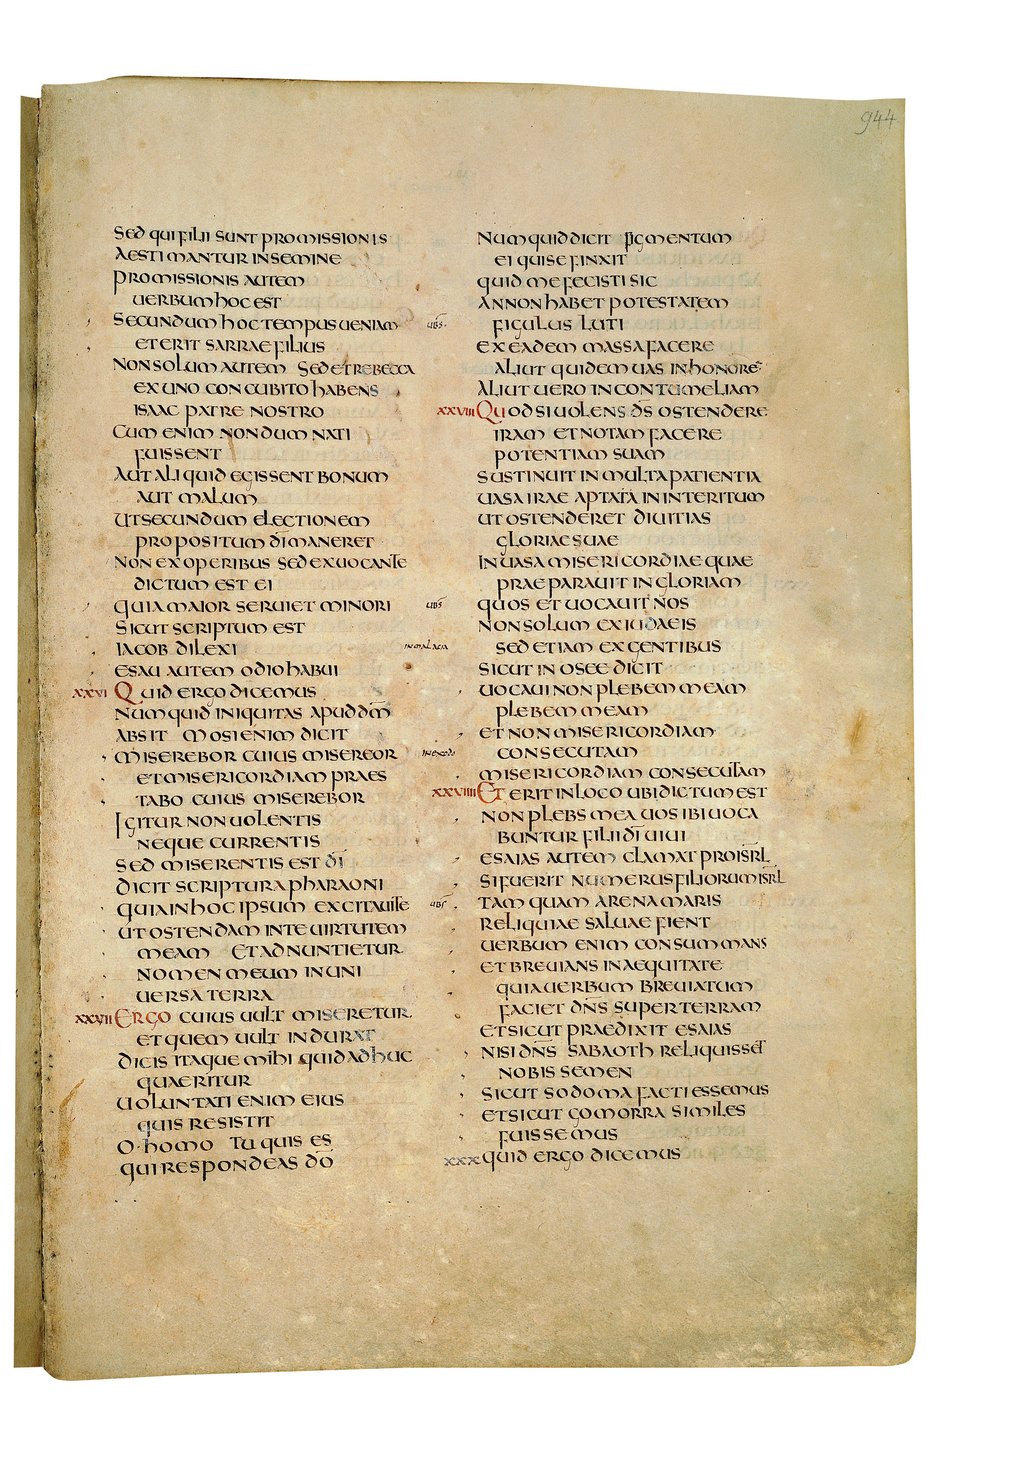 944
SED QUI FILII SUNT PROMISSIONIS
AESTIMANTUR IN SEMINE
PROMISSIONIS AUTEM
UERBUM HOC EST
SECUNDUM HOC TEMPUS UENIAM
ET ERIT SARRAE FILIUS
NON SOLUM AUTEM SED ET REBECCA
EX UNO CONCUBITO HABENS
ISAAC PATRE NOSTRO
CUM ENIM NONDUM NATI
FUISSENT
AUT ALIQUID EGISSENT BONUM
AUT MALUM
UT SECUNDUM ELECTIONEM
PROPOSITUM DĪ MANERET
NON EX OPERIBUS SED EX UOCANTE
DICTUM EST EI
QUIA MAIOR SERUIET MINORI
SICUT SCRIPTUM EST
IACOB DILEXI
ESAU AUTEM ODIO HABUI
XXVI QUID ERGO DICEMUS
NUMQUID INIQUITAS APUD DM̄
ABSIT MOSI ENIM DICIT
MISEREBOR CUIUS MISEREOR
ET MISERICORDIAM PRAES
TABO CUIUS MISEREBOR
IGITUR NON UOLENTIS
NEQUE CURRENTIS
SED MISERENTIS EST DĪ
DICIT SCRIPTURA PHARAONI
QUIA IN HOC IPSUM EXCITAUI TE
UT OSTENDAM IN TE UIRTUTEM
MEAM ET ADNUNTIETUR
NOMEN MEUM IN UNI
UERSA TERRA
XXVII ERGO CUIUS UULT MISERETUR
ET QUEM UULT INDURAT
DICIS ITAQUE MIHI QUID ADHUC
QUAERITUR
UOLUNTATI ENIM EIUS
QUIS RESISTIT
O HOMO TU QUIS ES
QUI RESPONDEAS DŌ
NUMQUID DICIT FIGMENTUM
EI QUI SE FINXIT
QUID ME FECISTI SIC
AN NON HABET POTESTATEM
FIGULUS LUTI
EX EADEM MASSA FACERE
ALIUT QUIDEM UAS IN HONORE
ALIUT UERO IN CONTUMELIAM
XXVIII QUOD SI UOLENS DS̄ OSTENDERE
IRAM ET NOTAM FACERE
POTENTIAM SUAM
SUSTINUIT IN MULTA PATIENTIA
UASA IRAE APTATA IN INTERITUM
UT OSTENDERET DIUITIAS
GLORIAE SUAE
IN UASA MISERICORDIAE QUAE
PRAEPARAUIT IN GLORIAM
QUOS ET UOCAUIT NOS
NON SOLUM EX IUDAEIS
SED ETIAM EX GENTIBUS
SICUT IN OSEE DICIT
UOCAUI NON PLEBEM MEAM
PLEBEM MEAM
ET NON MISERICORDIAM
CONSECUTAM
MISERICORDIAM CONSECUTAM
XXVIIII ET ERIT IN LOCO UBI DICTUM EST
NON PLEBS MEA UOS IBI UOCA
BUNTUR FILII DĪ UIUI
ESAIAS AUTEM CLAMAT PRO ISRL̄
SI FUERIT NUMERUS FILIORUM ISRL̄
TAMQUAM ARENA MARIS
RELIQUIAE SALUAE FIENT
UERBUM ENIM CONSUMMANS
ET BREUIANS IN AEQUITATE
QUIA UERBUM BREUIATUM
FACIET DN̄S SUPER TERRAM
ET SICUT PRAEDIXIT ESAIAS
NISI DN̄S SABAOTH RELIQUISSET
NOBIS SEMEN
SICUT SODOMA FACTI ESSEMUS
ET SICUT GOMORRA SIMILES
FUISSEMUS
XXX QUID ERGO DICEMUS